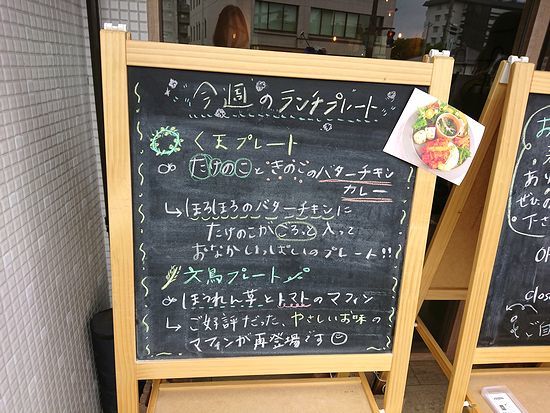 今週のランチプレート
くまプレート
たけのことときのこのバターチキン
カレー
ほろほろのバターチキンに
たけのこがごろっと入って
おなかいっぱいのプレート!!
文鳥プレート
ほうれん草とトマトのマフィン
ご好評だった、やさしいお味の
マフィンが再登場です